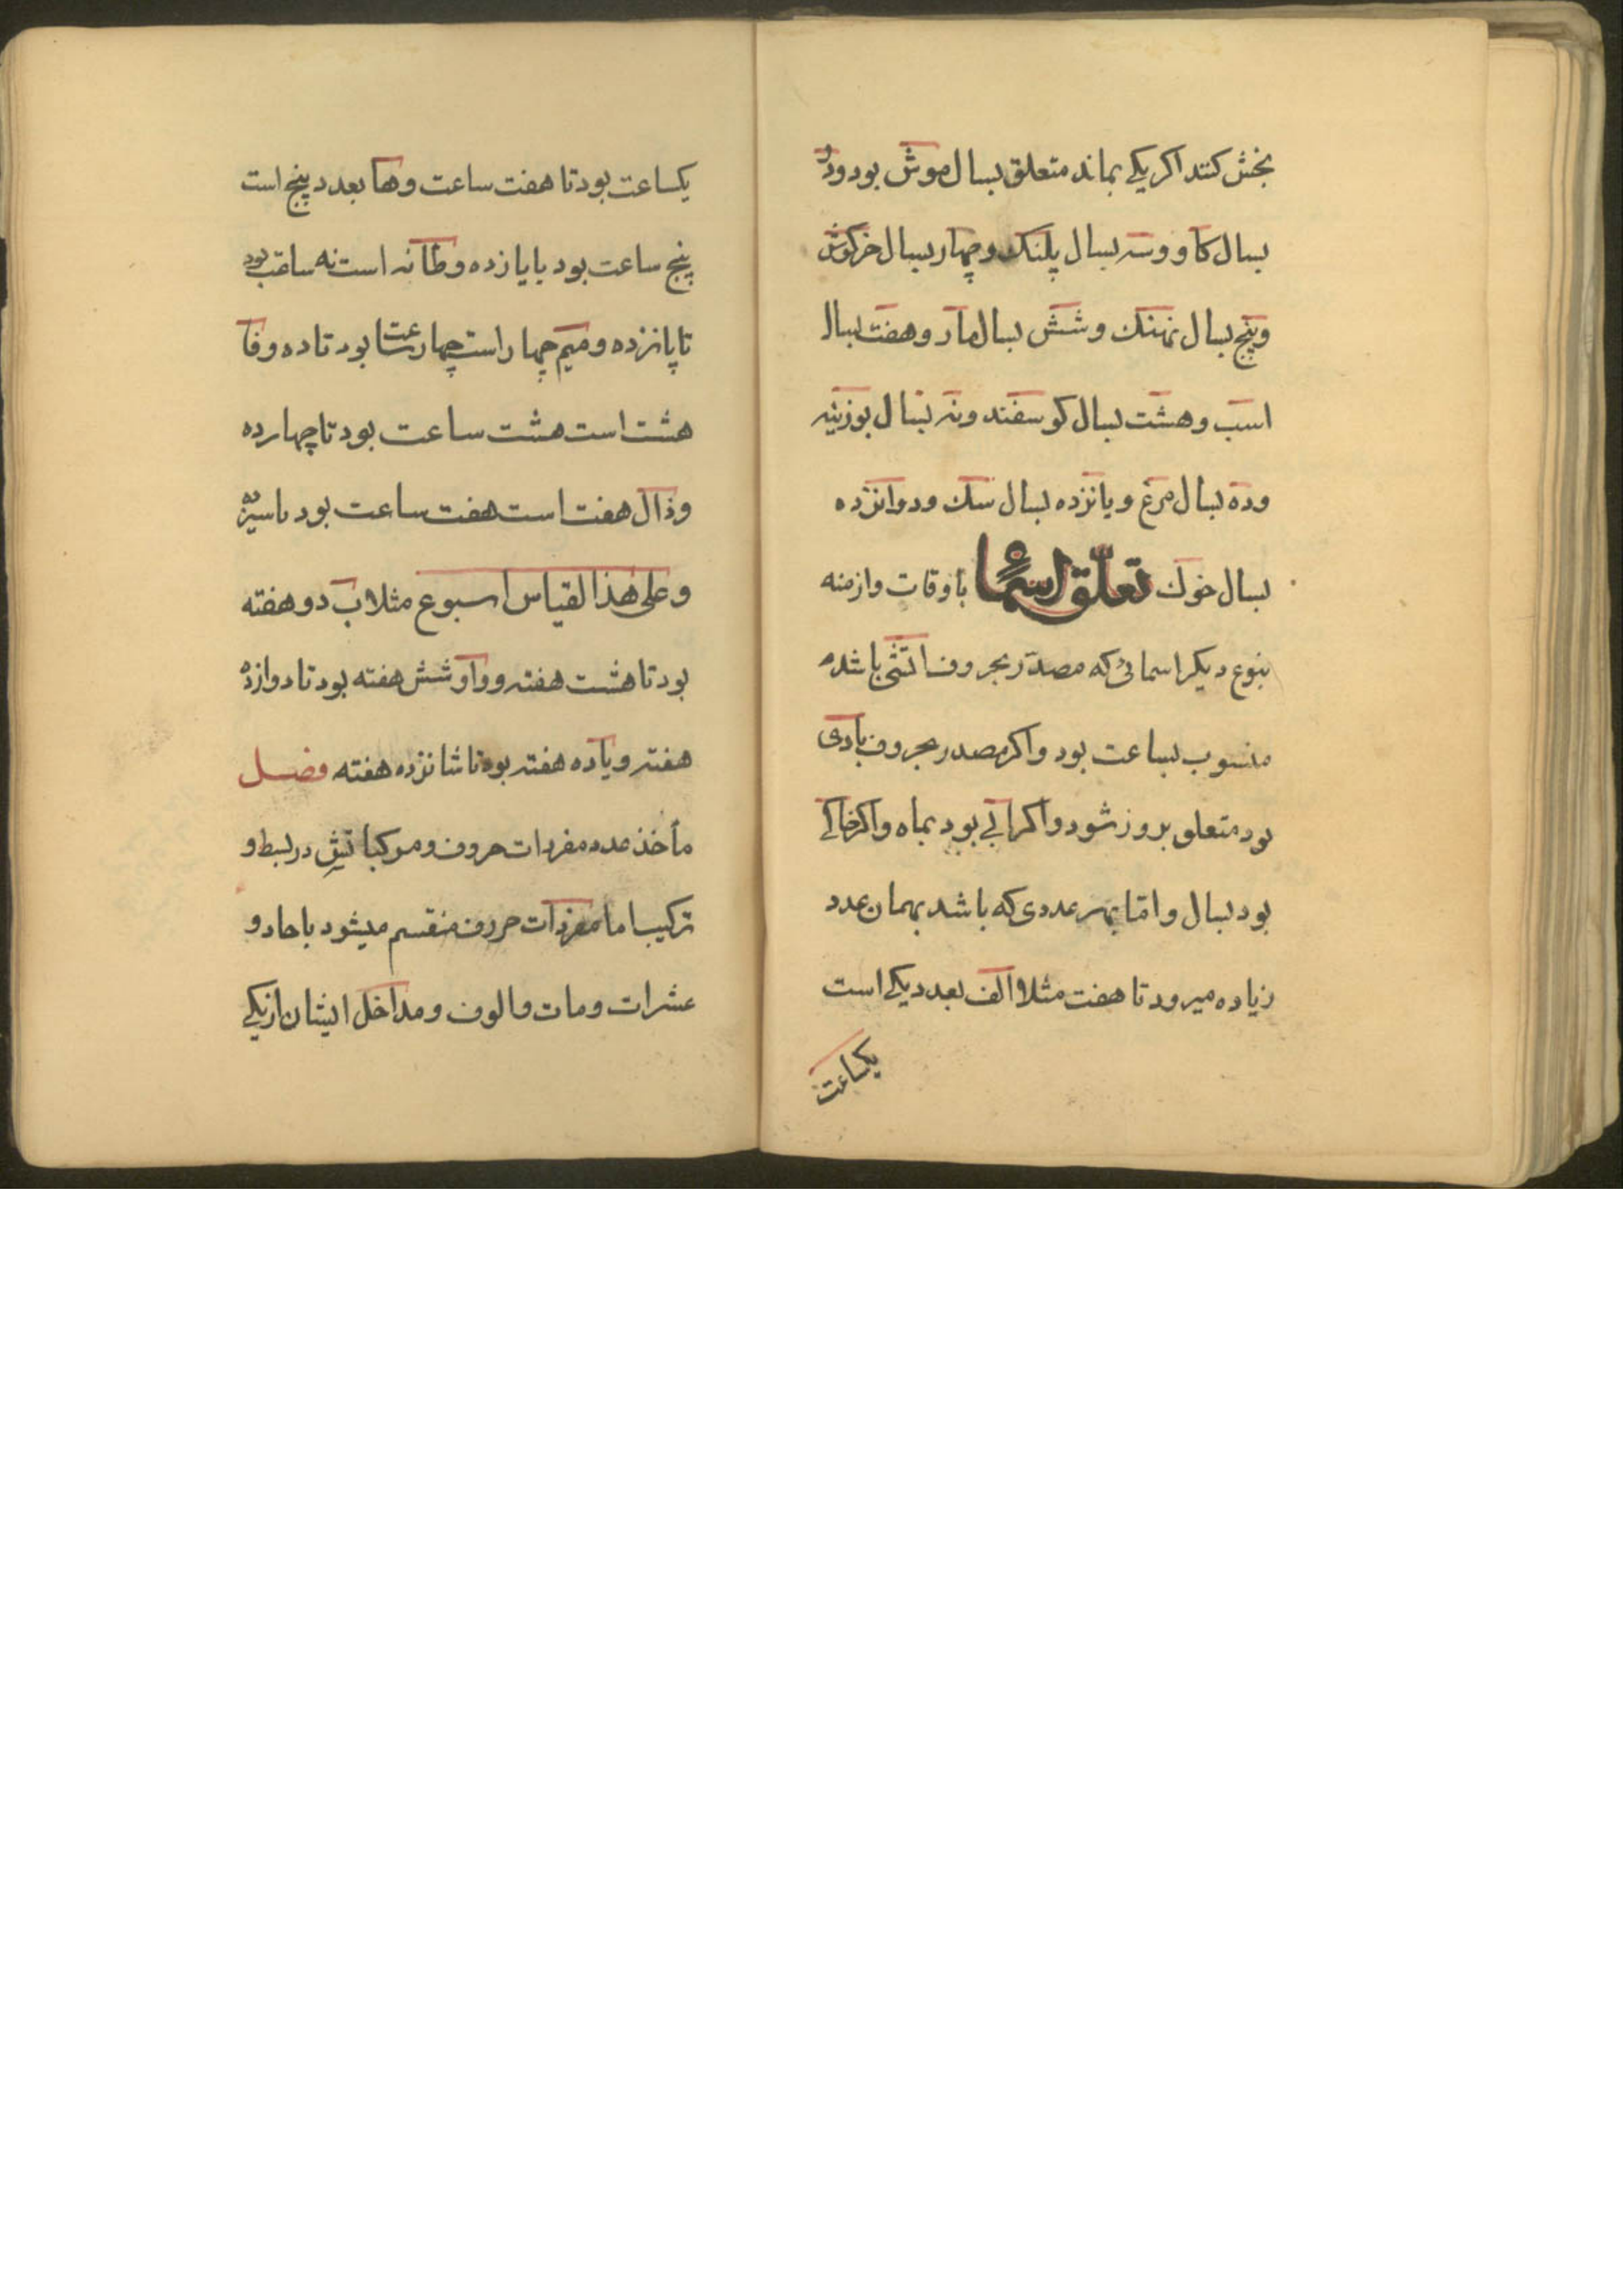 بخش کنند اکر یکے بماند متعلق بسال موش بود ودو
بسال کاو وسه بسال پلنک وچهار بسال خرکوش
وپنج بسال نهنک وشش بسال مار وهفت بسال
اسب وهشت بسال کوسفند ونه بسال بوزینه
وده بسال مرغ ویانزده بسال سک ودوانزده
بسال خوک تعلق اسما باوقات وازمنه
بنوع دیکر اسمائی که مصدر بحروف اتشی باشد
منسوب بساعت بود واکر مصدر بحروف بادی
بود متعلق بروز شود واکر ابے بود بماه واکر خاکے
بود بسال واما بهر عددی که باشد بهمان عدد
زیاده میرود تا هفت مثلا الف بعدد یکے است
یکساعت
یکساعت بود تا هفت ساعت وها بعدد پنج است
پنج ساعت بود تا یازده وطا نه است نه ساعت بود
تا پانزده ومیم چهار است چهار ساعت بود تا ده وفا
هشت است هشت ساعت بود تا چهارده
وذال هفت است هفت ساعت بود تا سیزده
وعلی هذا القیاس اسبوع مثلا ب دو هفته
بود تا هشت هفته وواو شش هفته بود تا دوازده
هفته ویا ده هفته بود تا شانزده هفته فصل
مأخذ عدد مفردات حروف ومرکباتش در بسط و
ترکیب اما مفردات حروف منقسم میشود باحاد و
عشرات ومات والوف ومداخل ایشان از یکے